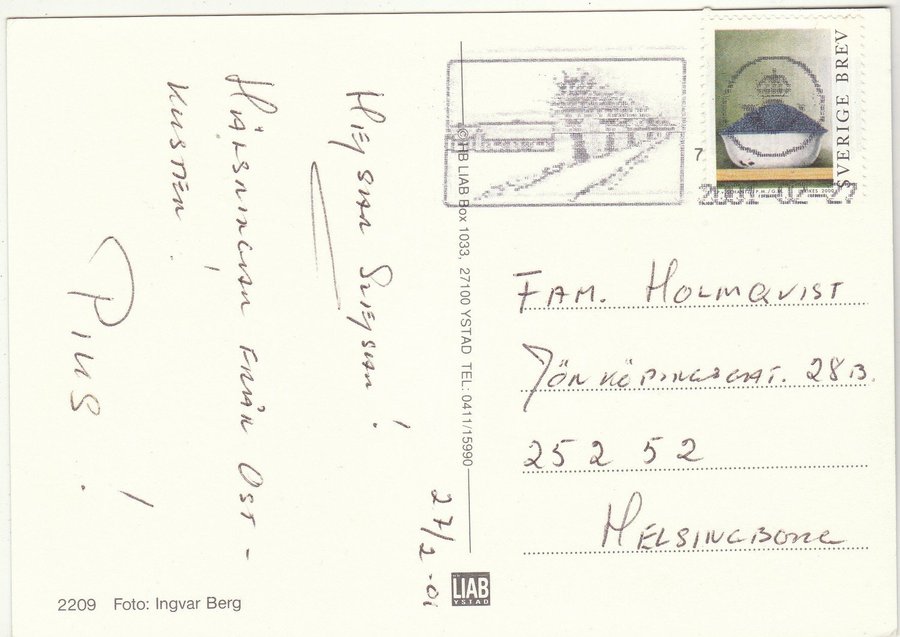 HEJSAN SVEJSAN!
HÄLSNINGAR FRÅN ÖST-
KUSTEN.
!
27/2-01
© HB LIAB Box 1033, 27100 YSTAD TEL: 0411/15990
SVERIGE BREV
FAM. HOLMQVIST
JÖNKÖPINGSGAT. 28B.
252 52
HELSINGBORG
2209 Foto: Ingvar Berg
LIAB
YSTAD